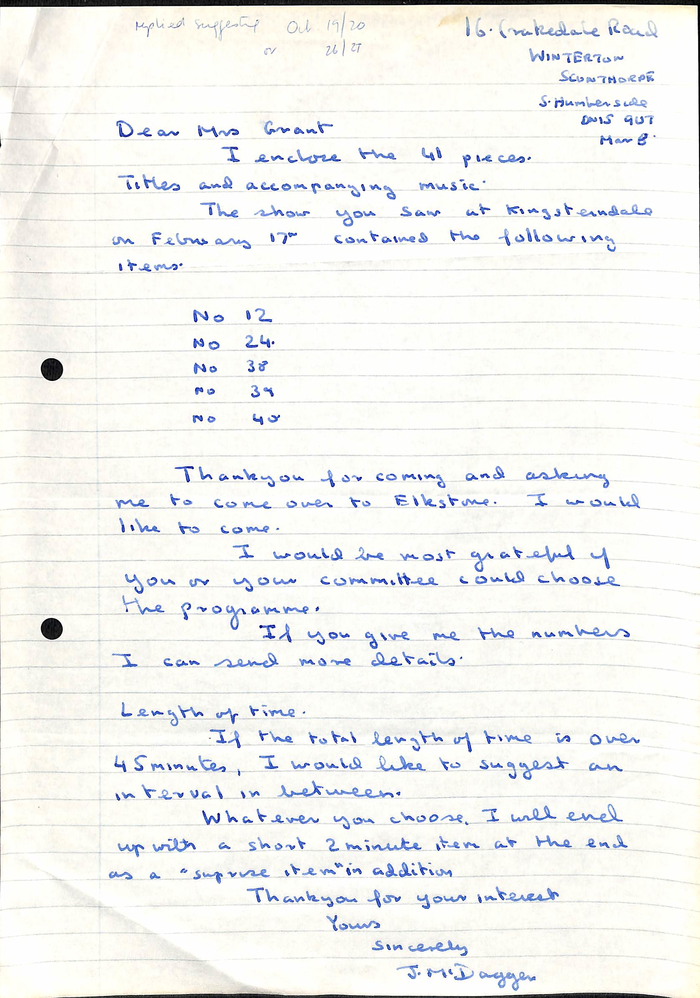 replied suggesting Oct 19/20
or 26/27
16. Crakedale Road
WINTERTON
SCUNTHORPE
S. Humberside
DN15 9UT
Mar 8
Dear Mrs Grant
I enclose the 41 pieces.
Titles and accompanying music.
The show you saw at Kingsterndale
on February 17th contained the following
items.
No 12
No 24.
No 38
No 39
No 40
Thankyou for coming and asking
me to come over to Elkstone. I would
like to come.
I would be most grateful if
you or your committee could choose
the programme.
If you give me the numbers
I can send more details.
Length of time.
If the total length of time is over
45 minutes, I would like to suggest an
interval in between.
Whatever you choose, I will end
up with a short 2 minute item at the end
as a "suprise item" in addition
Thankyou for your interest
Yours
Sincerely
J. McDagger